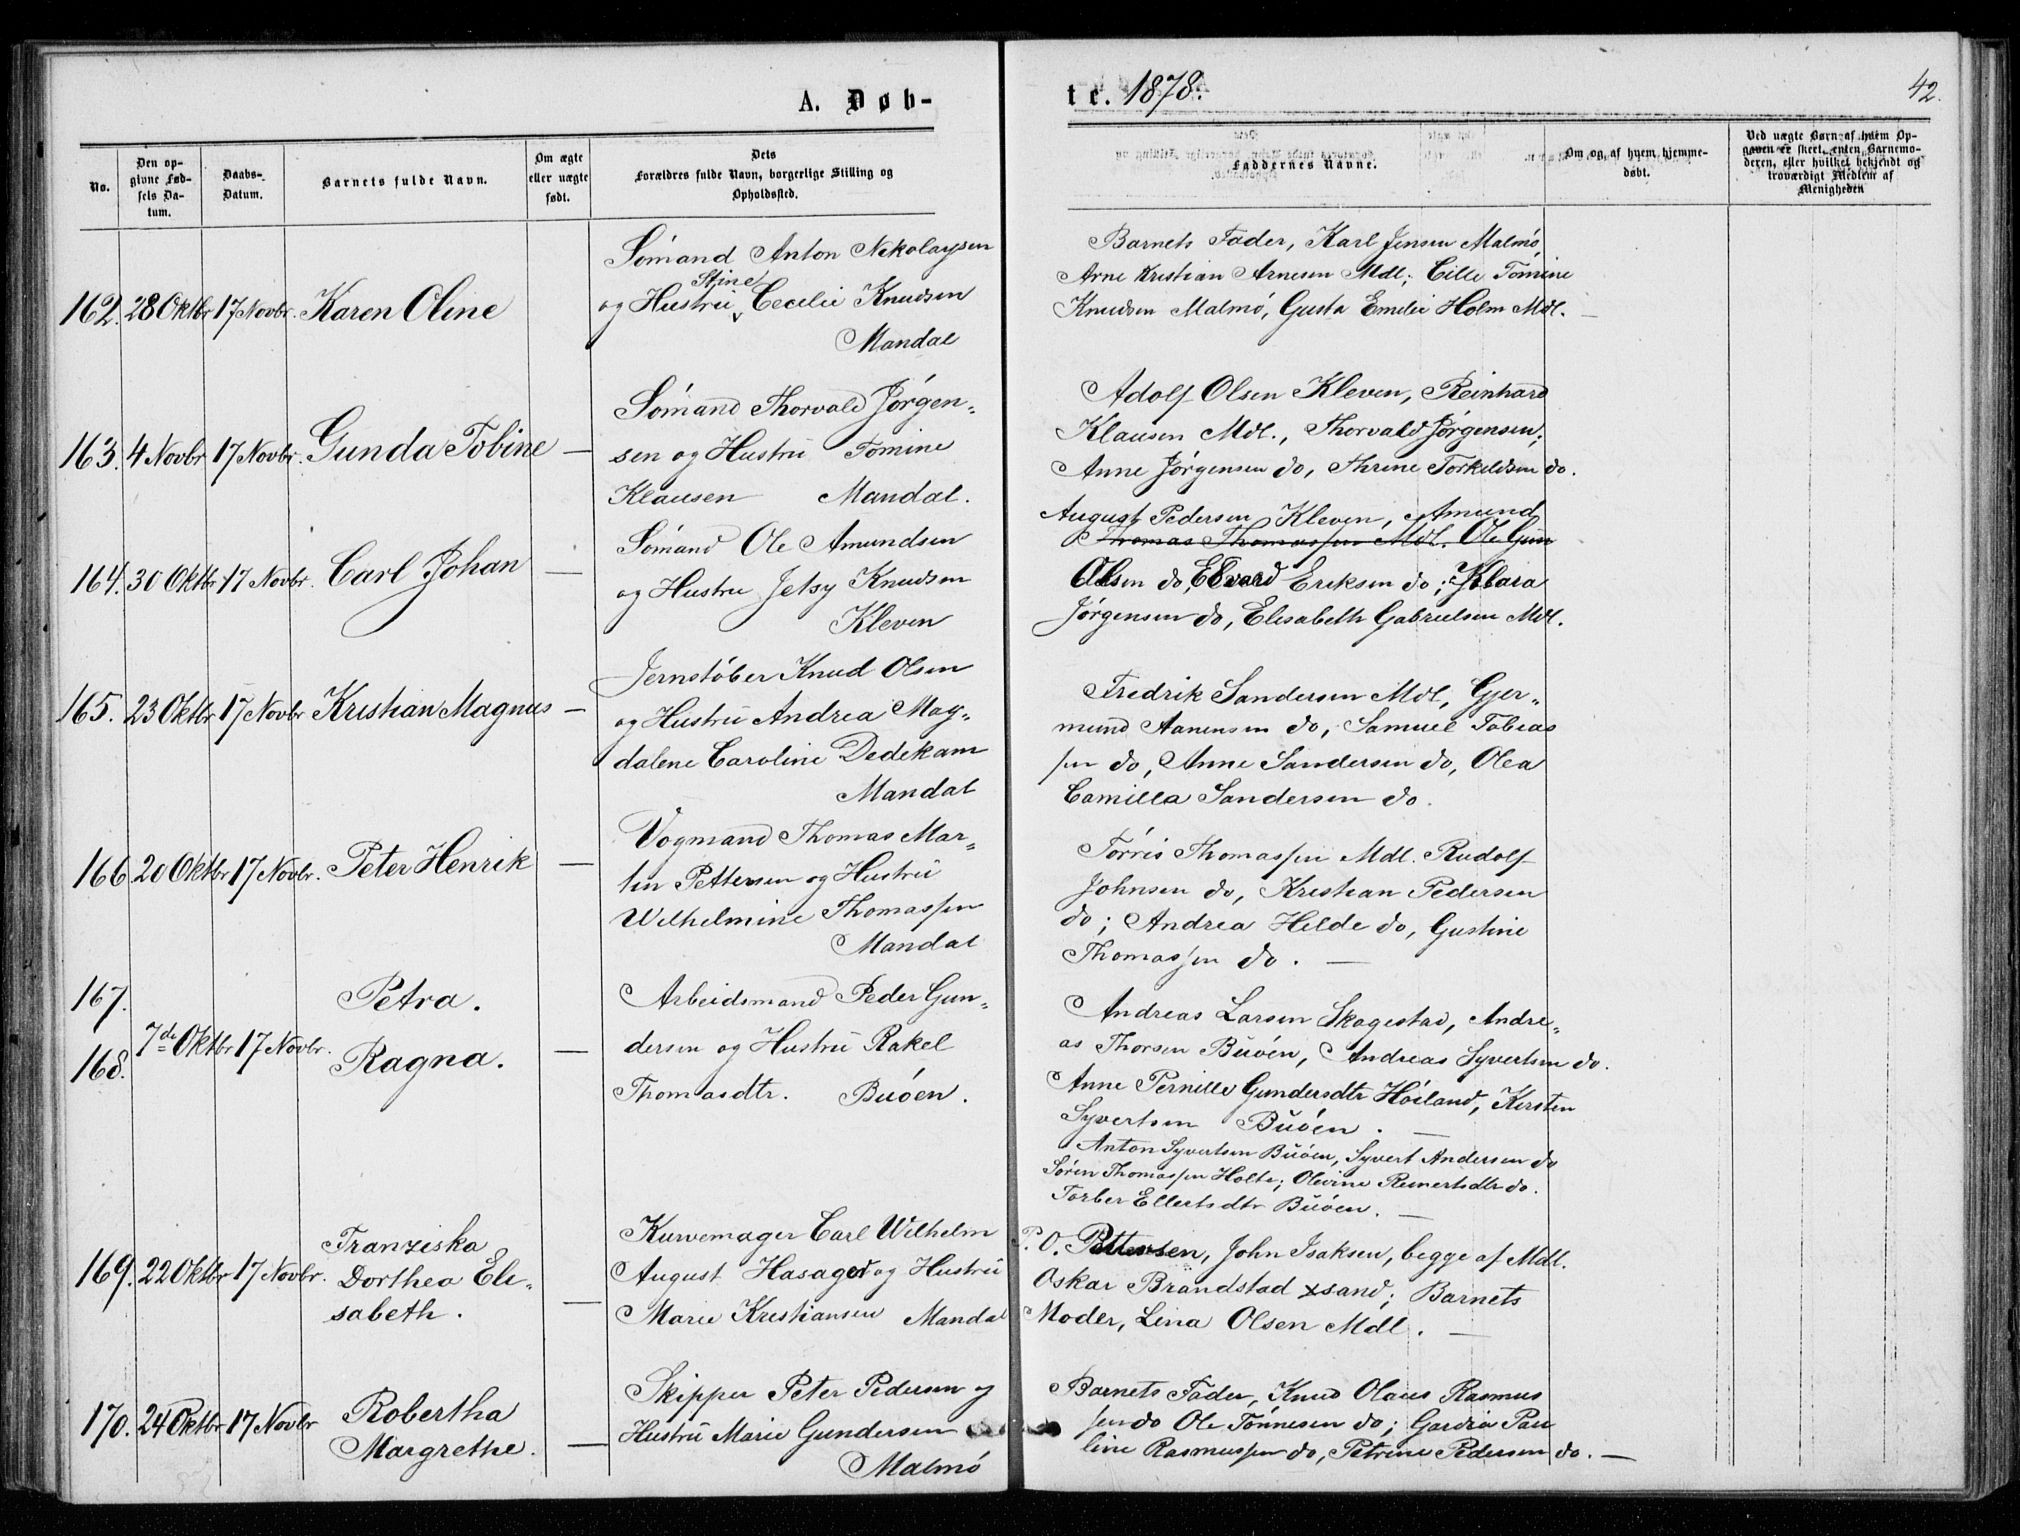 A. Døb-
No.
Den op-
givne Fød-
sels Da-
tum.
Daabs-
Datum.
Barnets fulde Navn.
Om ægte
eller uægte
født.
Dets
Forældres fulde Navn, borgerlige Stilling og
Opholdssted.
162. 28 Oktbr 17 Novbr. Karen Oline —
Sømand Anton Nekolaysen
Stine
og Hustru, Cecilie Knudsen
Mandal
163. 4 Novbr 17 Novbr. Gunda Tobine —
Sømand Thorvald Jørgen-
sen og Hustru Tomine
Klausen Mandal.
164. 30 Oktbr 17 Novbr. Carl Johan —
Sømand Ole Amundsen
og Hustru Jetsy Knudsen
Kleven
165. 23 Oktbr 17 Novbr Kristian Magnus —
Jernstøber Knud Olsen
og Hustru Andrea Mag-
dalene Caroline Dedekam
Mandal
166 20 Oktbr 17 Novbr. Peter Henrik —
Vogmand Thomas Mar-
tin Pettersen og Hustru
Wilhelmine Thomassen
Mandal
167. Petra.
7de Oktbr 17 Novbr.
168. Ragna. —
Arbeidsmand Peder Gun-
dersen og Hustru Rakel
Thomasdtr. Buøen.
169. 22 Oktbr 17 Novbr.
Franziska
Dorthea Eli-
sabeth. —
Kurvemager Carl Wilhelm
August Hasaged og Hustru
Marie Kristiansen Mandal
170. 24 Oktbr 17 Novbr
Robertha
Margrethe. —
Skipper Peter Pedersen og
Hustru Marie Gundersen
Malmø
te. 1878.
42.
Faddernes Navne.
Om og af hvem hjemme-
døbt.
Ved uægte Børn af hvem Op-
gaven er skeet, enten Barnemo-
deren, eller hvilket bekjendt og
troværdigt Medlem af
Menigheden
Barnets Fader, Karl Jensen Malmø
Arne Kristian Arnesen Mdl; Cille Tomine
Knudsen Malmø, Gusta Emilie Holm Mdl. —
Adolf Olsen Kleven, Reinhard
Klausen Mdl., Thorvald Jørgensen;
Anne Jørgensen do, Thrine Torkildsen do.
August Pedersen Kleven, Amund
Thomas Thomassen Mdl. Ole Gun
Olsen do, Edvard Eriksen do; Klara
Jørgensen do, Elisabeth Gabrielsen Mdl.
Fredrik Sandersen Mdl, Gjer-
mund Aanensen do, Samuel Tobias
sen do, Anne Sandersen do, Olea
Camilla Sandersen do.
Tørris Thomassen Mdl. Rudolf
Johnsen do, Kristian Pedersen
do; Andrea Hilde do, Gustine
Thomassen do. —
Andreas Larsen Skagestad, Andre-
as Thorsen Buøen, Andreas Syvertsen do.
Anne Pernille Gundersdtr Høiland, Kirsten
Syvertsen Buøen. —
Anton Syvertsen Buøen, Syvert Andersen do
Søren Thomassen Holte; Olevine Reinertsdtr do.
Torber Ellertsdtr Buøen. —
P. O. Pettersen, John Isaksen, begge af Mdl.
Oskar Brandstad xsand; Barnets
Moder, Lina Olsen Mdl. —
Barnets Fader, Knud Olaus Rasmus
sen do Ole Tønnesen do; Gardia Pau
line Rasmussen do, Petrine Pedersen do. —